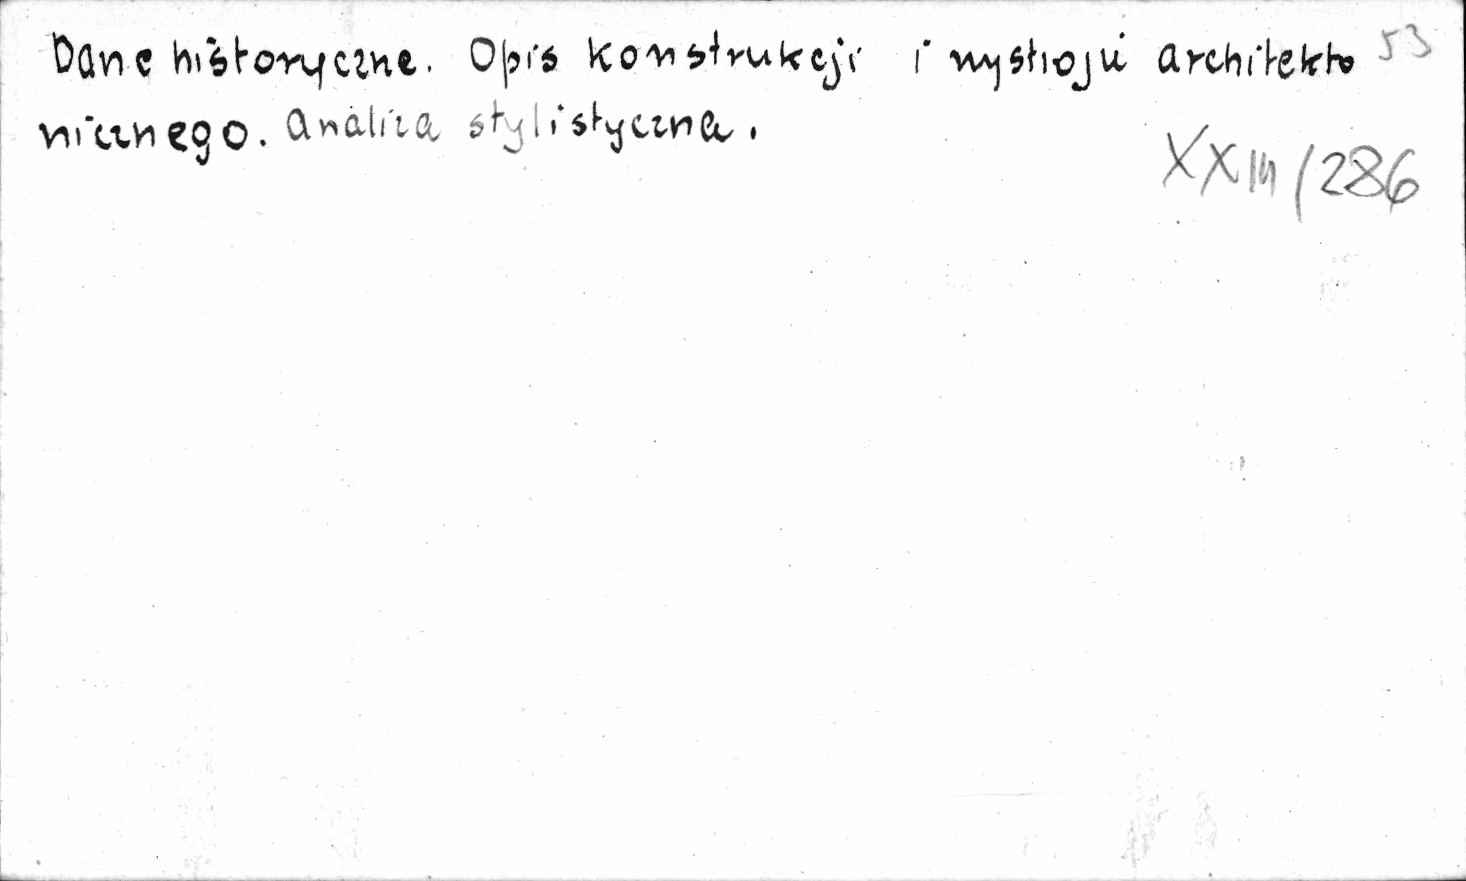 Dane historyczne. Opis konstrukcji i wystroju architekto 53
nicznego. Analiza stylistyczna.
XXIII/286